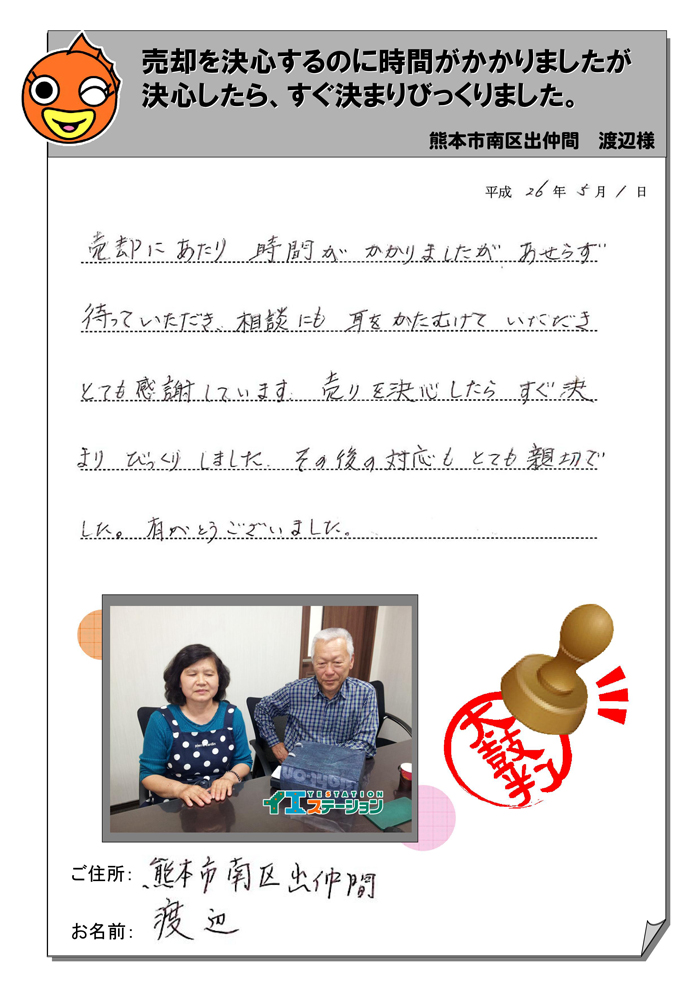 売却を決心するのに時間がかかりましたが
決心したら、すぐ決まりびっくりました。
熊本市南区出仲間　渡辺様
平成 26 年 5 月 1 日
売却にあたり 時間が かかりましたが あせらず
待っていただき、相談にも 耳を かたむけて いただき
とても感謝しています. 売りを決心したら すぐ決
まり びっくり しました. その後の対応も とても親切で
した。有がとうございました。
YESTATION
イエステーション
太鼓判
ご住所: 熊本市南区出仲間
お名前: 渡辺